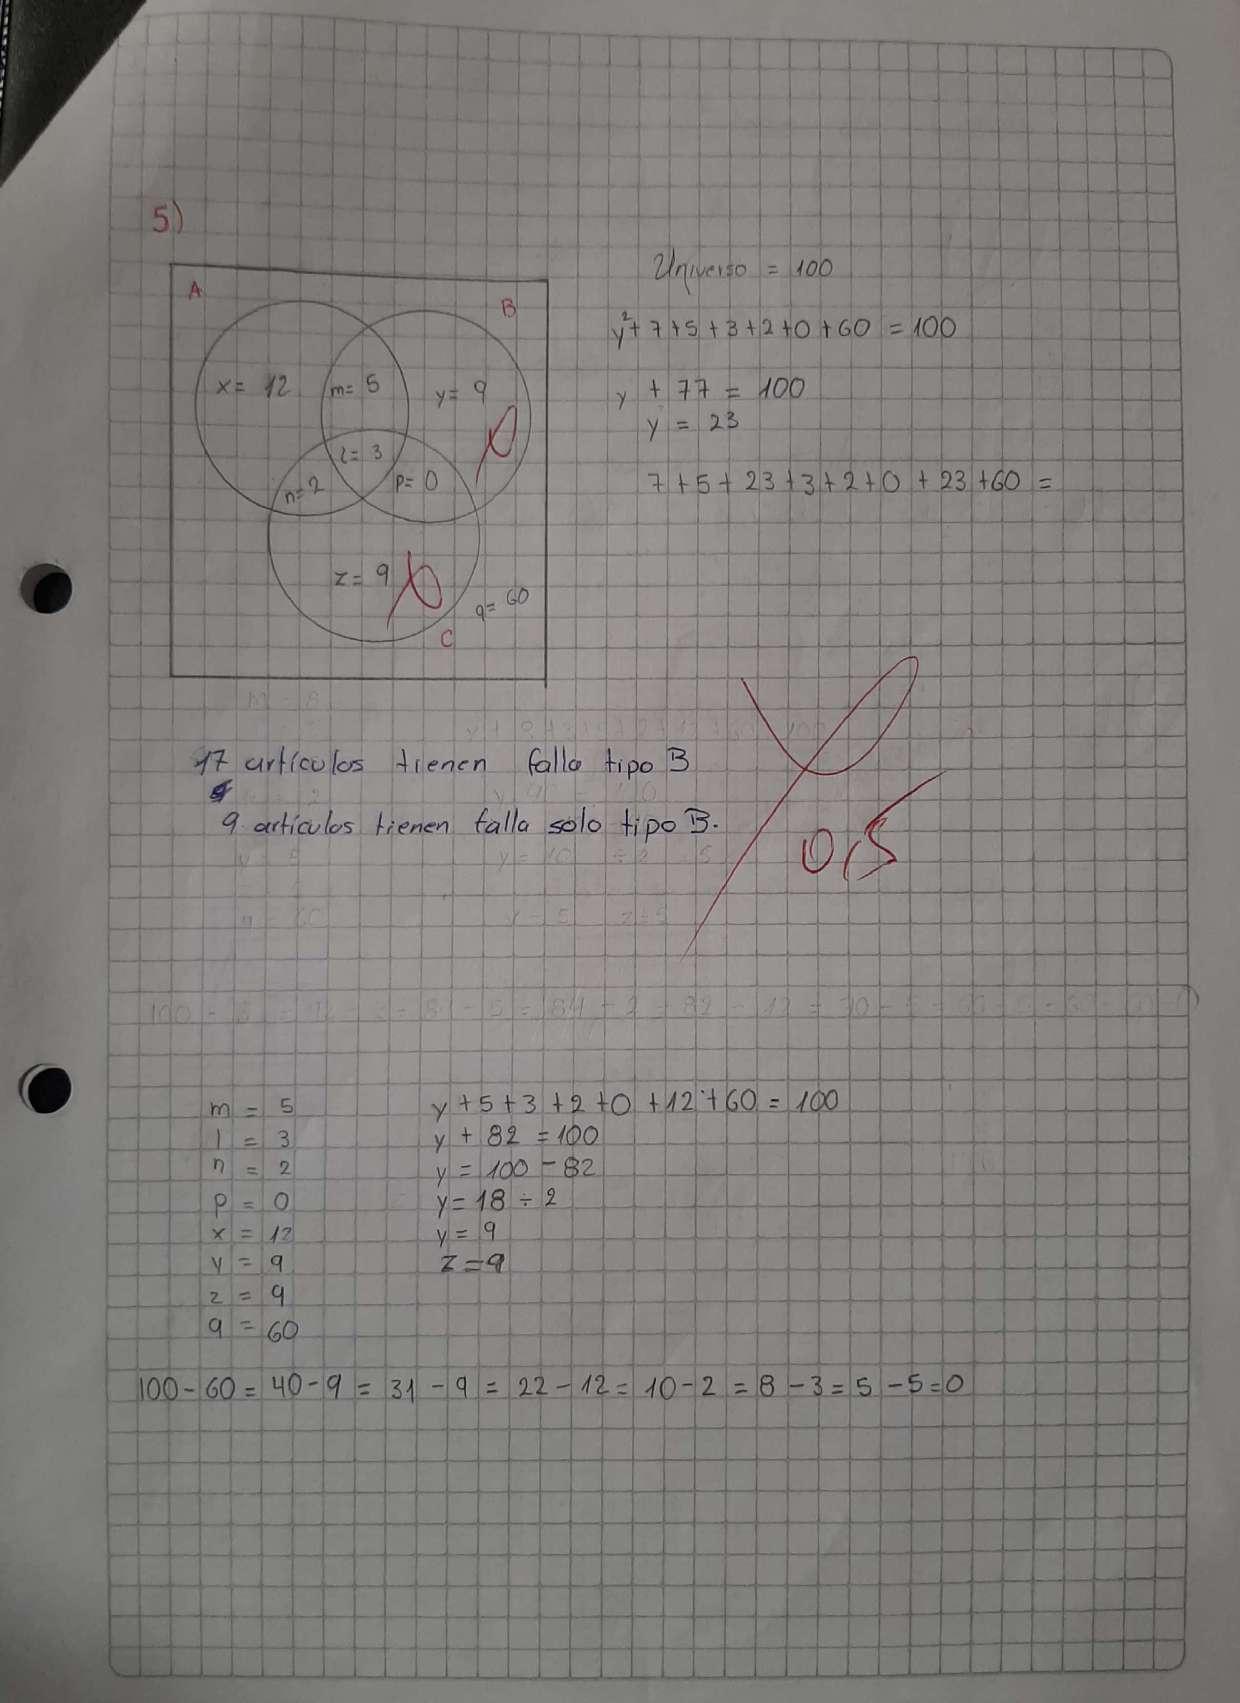 5)
Universo = 100
A
B
y²+7+5+3+2+0+60 = 100
x= 12
m= 5
y= 9
y + 77 = 100
y = 23
l= 3
n=2
p= 0
7+5+23+3+2+0+23+60 =
z= 9
q= 60
C
17 artículos tienen falla tipo B
9 artículos tienen falla solo tipo B.
0,5
m = 5
y+5+3+2+0+12+60 = 100
l = 3
y + 82 = 100
n = 2
y = 100 - 82
p = 0
y= 18 ÷ 2
x = 12
y = 9
y = 9
z = 9
z = 9
q = 60
100 - 60 = 40 - 9 = 31 - 9 = 22 - 12 = 10 - 2 = 8 - 3 = 5 - 5 = 0